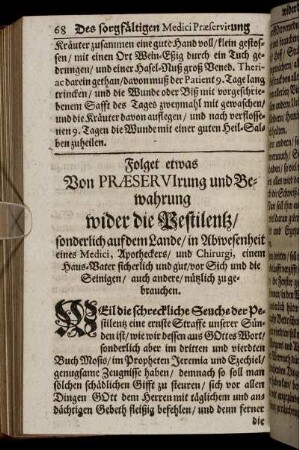 68 Des sorgfältigen Medici Præservirung
Kräuter zusammen eine gute Hand voll/ klein gestos-
sen/ mit einen Ort Wein-Eßig durch ein Tuch ge-
drungen/ und einer Hasel-Nuß groß Vened. Theri-
ac darein gethan/ davon muß der Patient 9. Tage lang
trincken/ und die Wunde oder Biß mit vorgeschrie-
benem Safft des Tages zweymahl mit gewaschen/
und die Kräuter davon auflegen/ und nach verflosse-
nen 9. Tagen die Wunde mit einer guten Heil-Sal-
ben zuheilen.
Folget etwas
Von PRÆSERVIrung und Be-
wahrung
wider die Pestilentz/
sonderlich auf dem Lande/ in Abwesenheit
eines Medici, Apotheckers/ und Chirurgi, einem
Haus-Vater sicherlich und gut/ vor Sich und die
Seinigen/ auch andere/ nützlich zu ge-
brauchen.
WEil die schreckliche Seuche der Pe-
stilentz eine ernste Straffe unserer Sün-
den ist/ wie wir dessen aus GOttes Wort
sonderlich aber im dritten und vierdten
Buch Mosis/ im Propheten Jeremia und Ezechiel/
genugsame Zeugnisse haben/ demnach so soll man
solchen schädlichen Gifft zu steuren/ sich vor allen
Dingen GOtt dem Herren mit täglichem und an-
dächtigen Gebeth fleißig befehlen/ und denn ferner
die